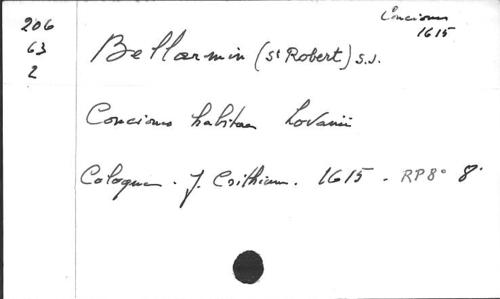 206
63
2
Conciones
1615
Bellarmin (St Robert) S.J.
Conciones habitae Lovanii
Cologne. J. Crithium. 1615. RP8° 8°